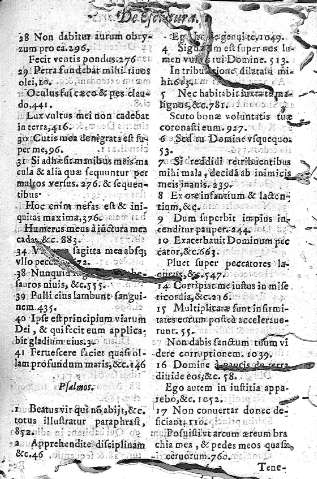 De Escritura.
28 Non dabitur aurum obry-
zum pro ea. 296,
Fecit ventis pondus. 276
29 Petra fundebat mihi rivos
olei, 10.
Oculus fui cæco & pes clau-
do, 441.
Lux vultus mei non cadebat
in terra, 416.
30 Cutis mea denigrata est su-
per me, 96.
31 Si adhæsit manibus meis ma
cula & alia quæ sequuntur per
multos versus. 276 & sequen-
tibus
Hoc enim nefas est & ini-
quitas maxima, 376.
Humerus meus à iunctura mea
cadat, &c. 883.
34 sagitta mea absq;
vllo pecca 72.
38 Nunquid
sauros niuis, &c. 555.
39 Pulli eius lambunt sangui-
nem. 435.
40 Ipse est principium viarum
Dei, & qui fecit eum applica-
bit gladium eius. 3.
41 Feruescere faciet quasi ol-
lam profundum maris, &c. 146
Psalmos.
1 Beatus vir qui nō abijt, &c.
totus illustratur paraphrasi,
852.
Apprehendite disciplinam
&c. 46
Ego 1049.
4 Signatum est super nos lu-
men vultus tui Domine. 513.
In tribulatione dilatasti mi-
hi. 663.
5 Nec habitabit iuxta te ma-
lignus, &c. 781.
Scuto bonæ voluntatis tuæ
coronasti eum. 927.
6 Sed tu Domine vsquequo
53.
7 Si reddidi retribuentibus
mihi mala, decidā ab inimicis
meis inanis. 239.
8 Ex ore infantium & lacten-
tium, &c.
9 Dum superbit impius in-
cenditur pauper. 244.
10 Exacerbauit Dominum pec
cator, &c. 663.
Pluet super peccatores la-
queos, &c. 547.
14 Corripiet me iustus in mise
ricordia, &c. 216
15 Multiplicatæ sunt infirmi-
tates eorum postea accelerave-
runt. 55.
Non dabis sanctum tuum vi
dere corruptionem. 1039.
16 Domine à paucis de terra
diuide eos, &c. 58.
Ego autem in iustitia appa-
rebo, &c. 1052.
17 Non conuertar donec de-
ficiant. 110.
Posuisti vt arcum æreum bra
chia mea, & pedes meos quasi
ceruorum. 760.
Tene-